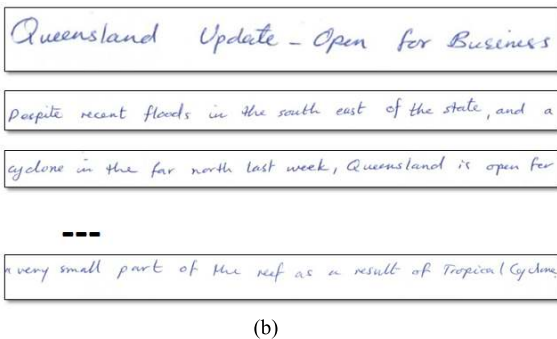 Queensland Update - Open for Business
Despite recent floods in the south east of the state, and a
cyclone in the far north last week, Queensland is open for
---
a very small part of the reef as a result of Tropical Cyclone
(b)